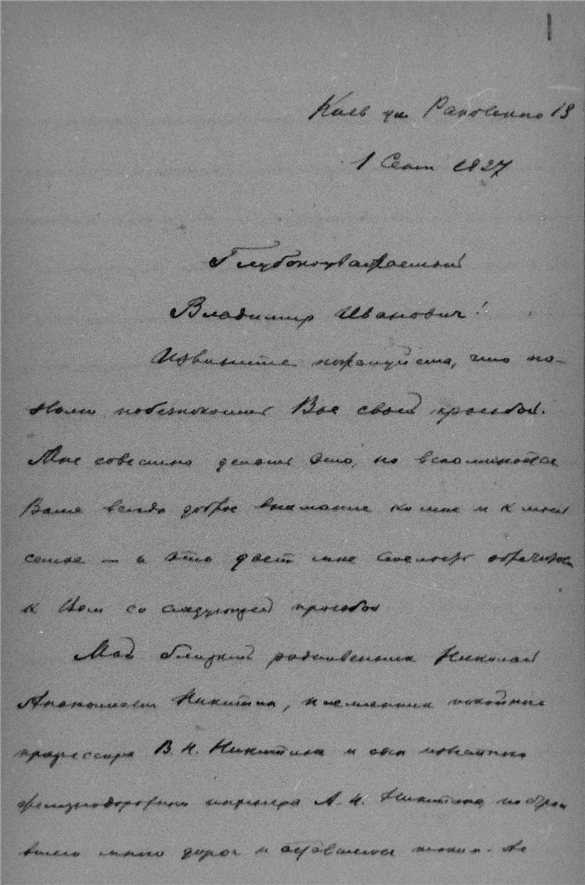 Киев ул. Раковского 13
1 Сент 1927
Глубокоуважаемый
Владимир Иванович!
Извините пожалуйста, что по-
побеспокоить Вас своей просьбой.
Мне совестно делать это, но вспоминается
Ваше всегда доброе внимание ко мне и к моей
семье — и это дает мне смелость обратиться
к Вам со следующей просьбой
Мой близкий родственник Николай
Никитин, племянник покойного
профессора В. Н. Никитина и сын известного
железнодорожного инженера А. Н. Никитина,
много дорог и